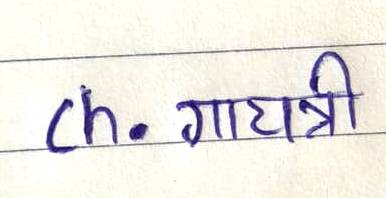 Ch. गायत्री